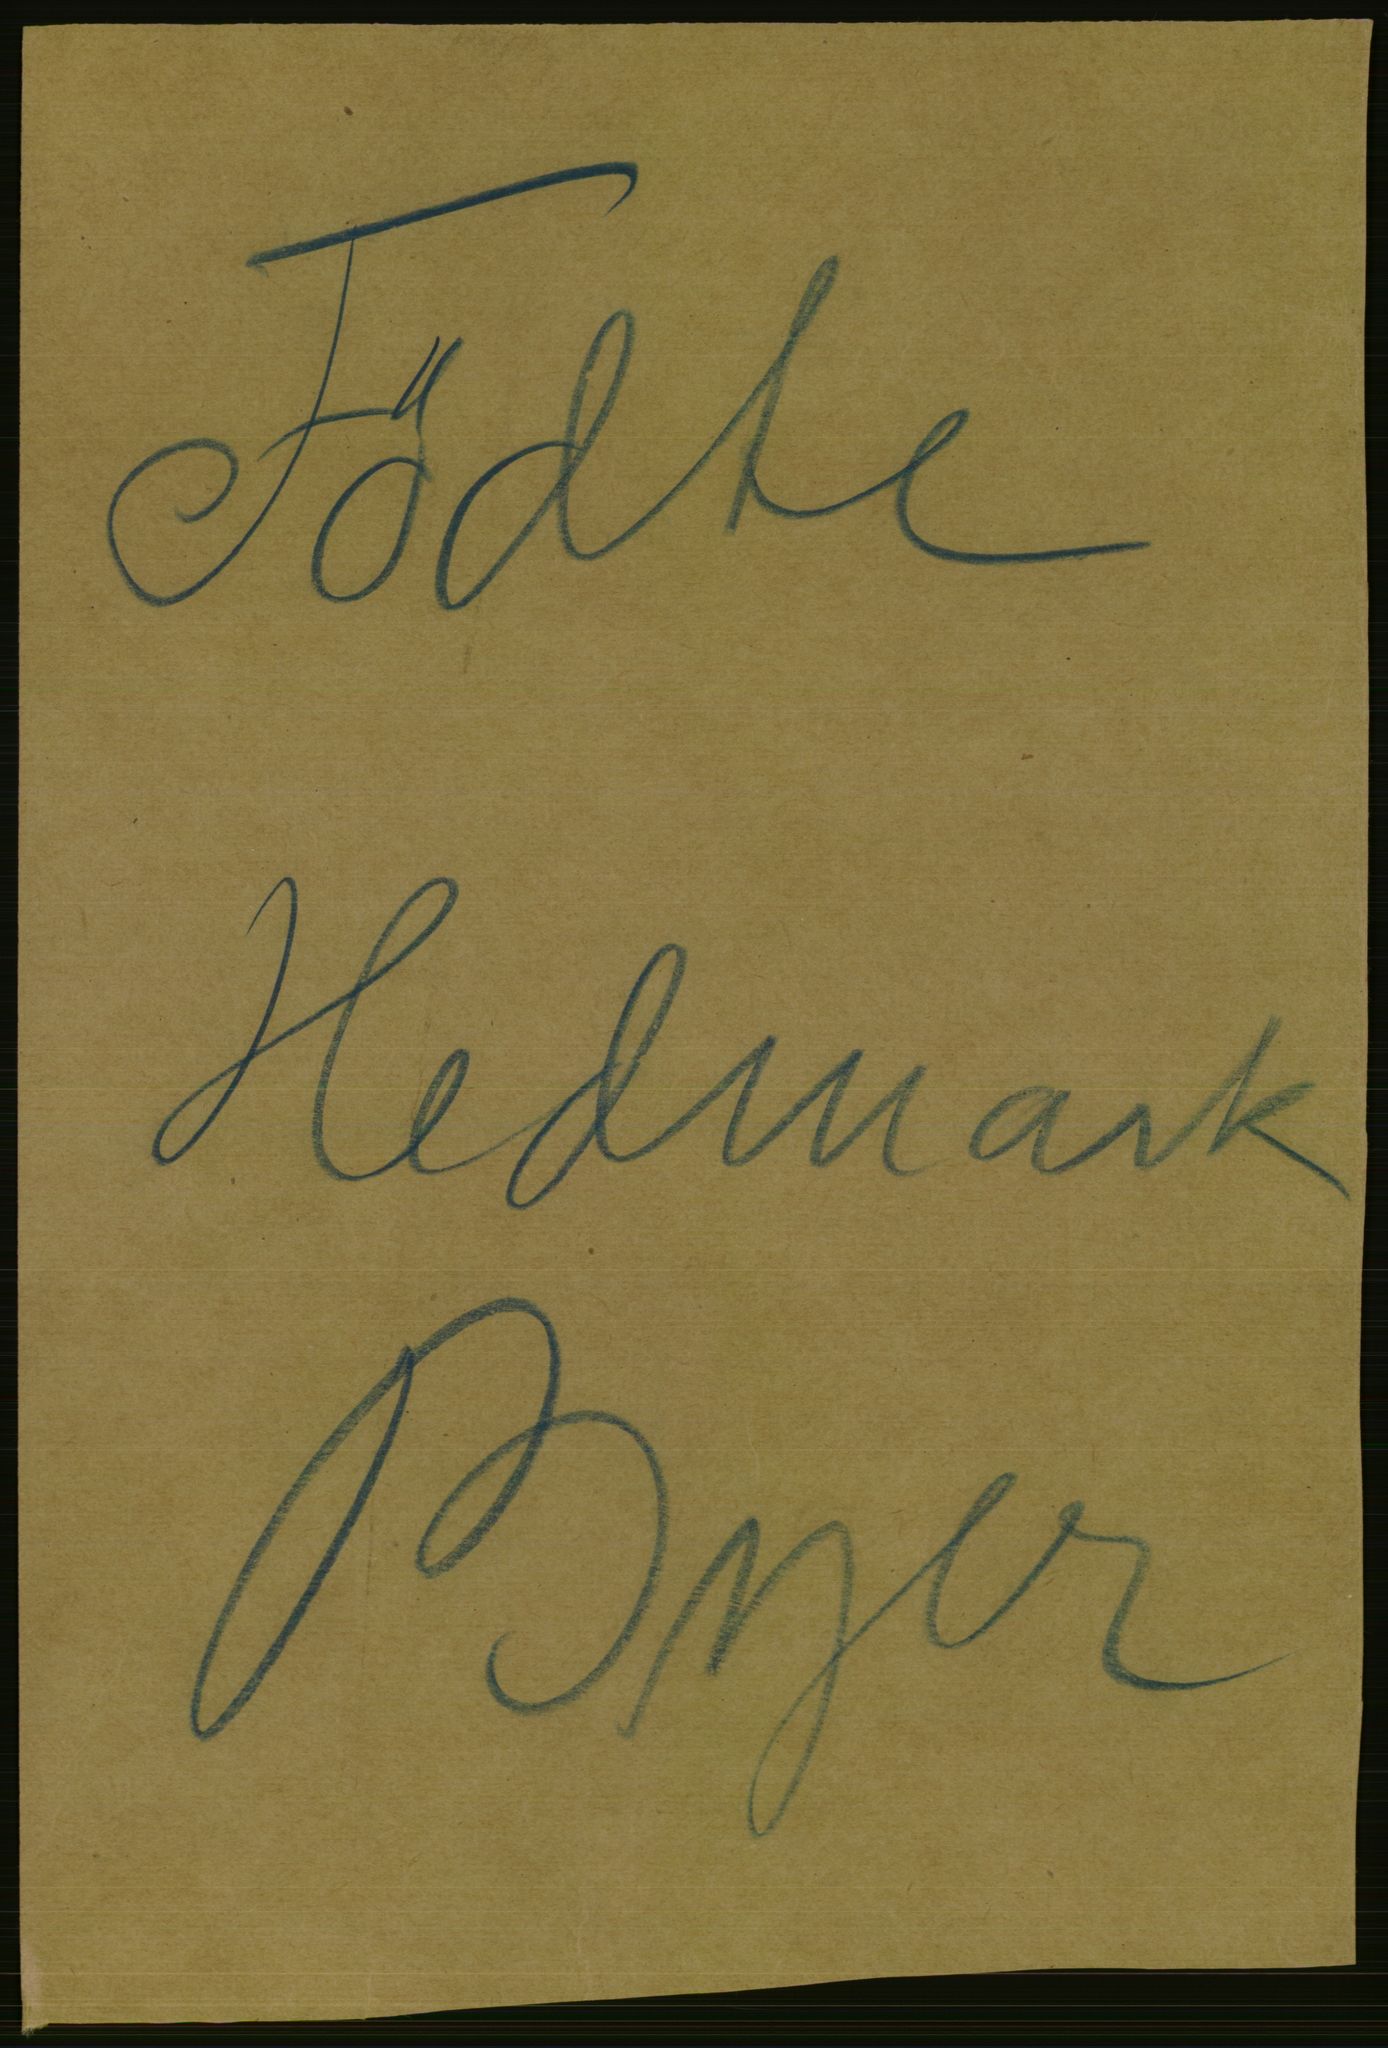 Födte
Hedmark
Byer